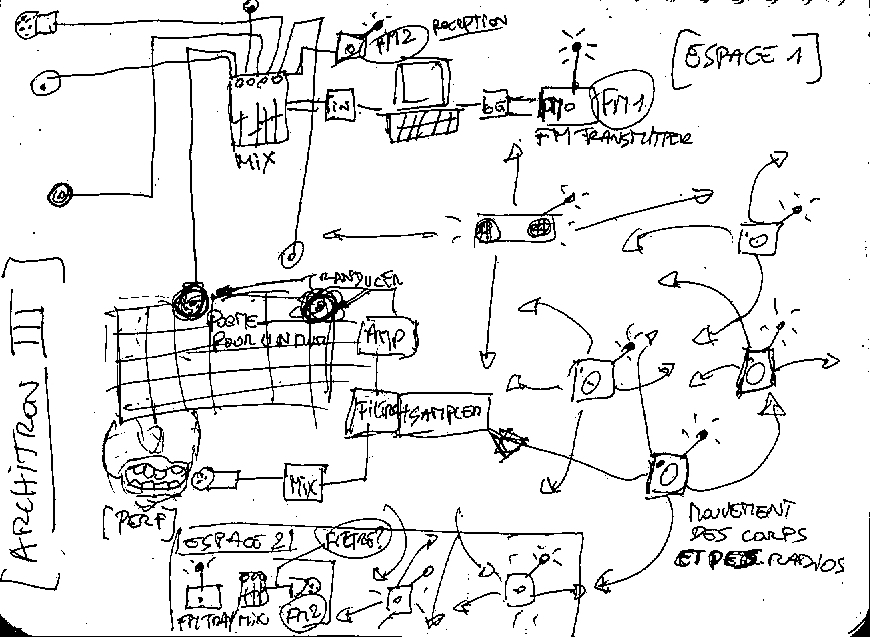 FM2
RECEPTION
[ESPACE 1]
iN
FM1
MiX
FM TRANSMITTER
[ARCHITRON III]
TRANDUCER
POEME
POUR UN MUR
AMP
FILTRE + SAMPLER
MiX
[PERF]
MOUVEMENT
DES CORPS
ET DES RADIOS
ESPACE 2
FILTRE?
MiX
FM2